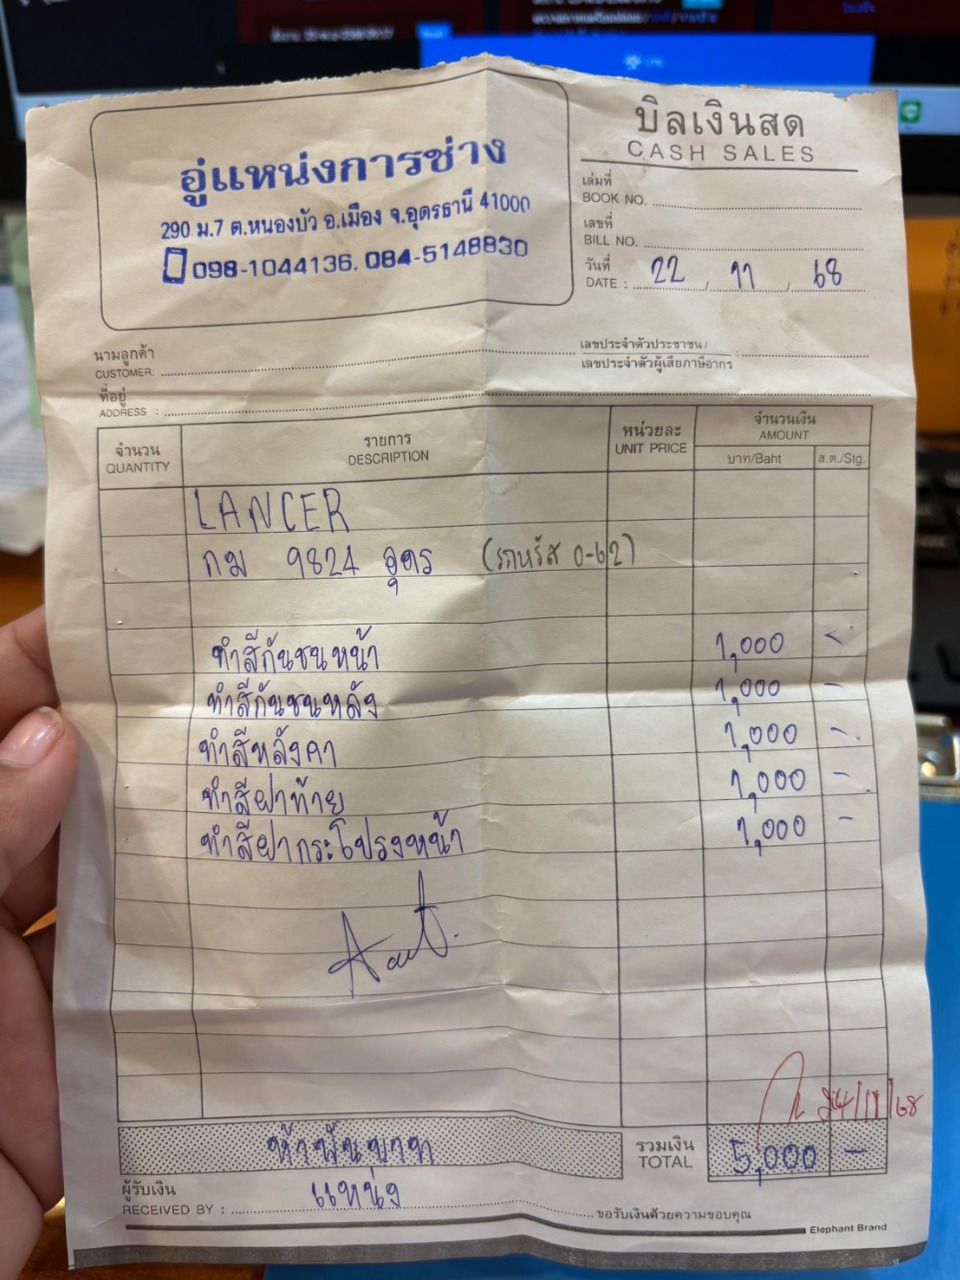 อู่แหน่งการช่าง
290 ม.7 ต.หนองบัว อ.เมือง จ.อุดรธานี 41000
098-1044136, 084-5148830
บิลเงินสด
CASH SALES
เล่มที่
BOOK NO.
เลขที่
BILL NO.
วันที่
DATE : 22 / 11 / 68
นามลูกค้า
CUSTOMER:
เลขประจำตัวประชาชน /
เลขประจำตัวผู้เสียภาษีอากร :
ที่อยู่
ADDRESS :
จำนวน
QUANTITY
รายการ
DESCRIPTION
หน่วยละ
UNIT PRICE
จำนวนเงิน
AMOUNT
บาท/Baht ส.ต./Stg.
LANCER
กม 9824 อุดร (รถหรัส 0-62)
ทำสีกันชนหน้า 1,000 -
ทำสีกันชนหลัง 1,000 -
ทำสีหลังคา 1,000 -
ทำสีฝาท้าย 1,000 -
ทำสีฝากระโปรงหน้า 1,000 -
24/11/68
ห้าพันบาท
รวมเงิน
TOTAL
5,000 -
ผู้รับเงิน
RECEIVED BY : แหน่ง
ขอรับเงินด้วยความขอบคุณ
Elephant Brand